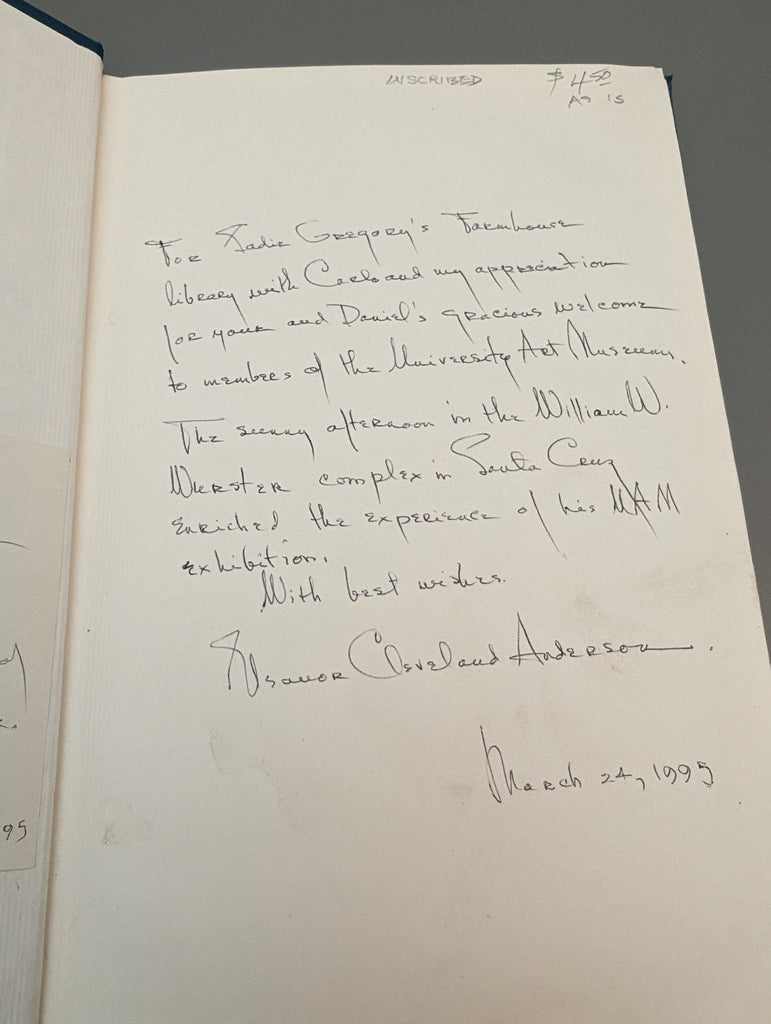 INSCRIBED $4.50
AS IS
For Sadie Gregory's Farmhouse
library with Carlo and my appreciation
for your and Daniel's gracious welcome
to members of the University Art Museum.
The sunny afternoon in the William W.
Wurster complex in Santa Cruz
enriched the experience of his MAM
exhibition.
With best wishes.
Eleanor Cleveland Anderson.
March 24, 1995
95